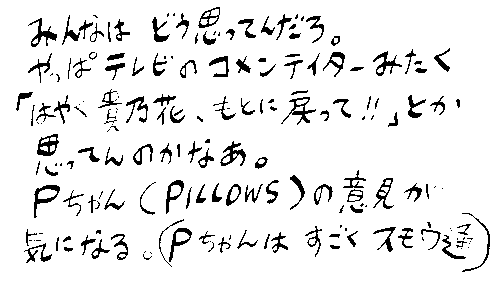 みんなは どう思ってんだろ。
やっぱ テレビのコメンテイターみたく
「はやく貴乃花、もとに戻って!!」とか
思ってんのかなあ。
Pちゃん(PILLOWS)の意見が
気になる。(Pちゃんは すごく スモウ通)